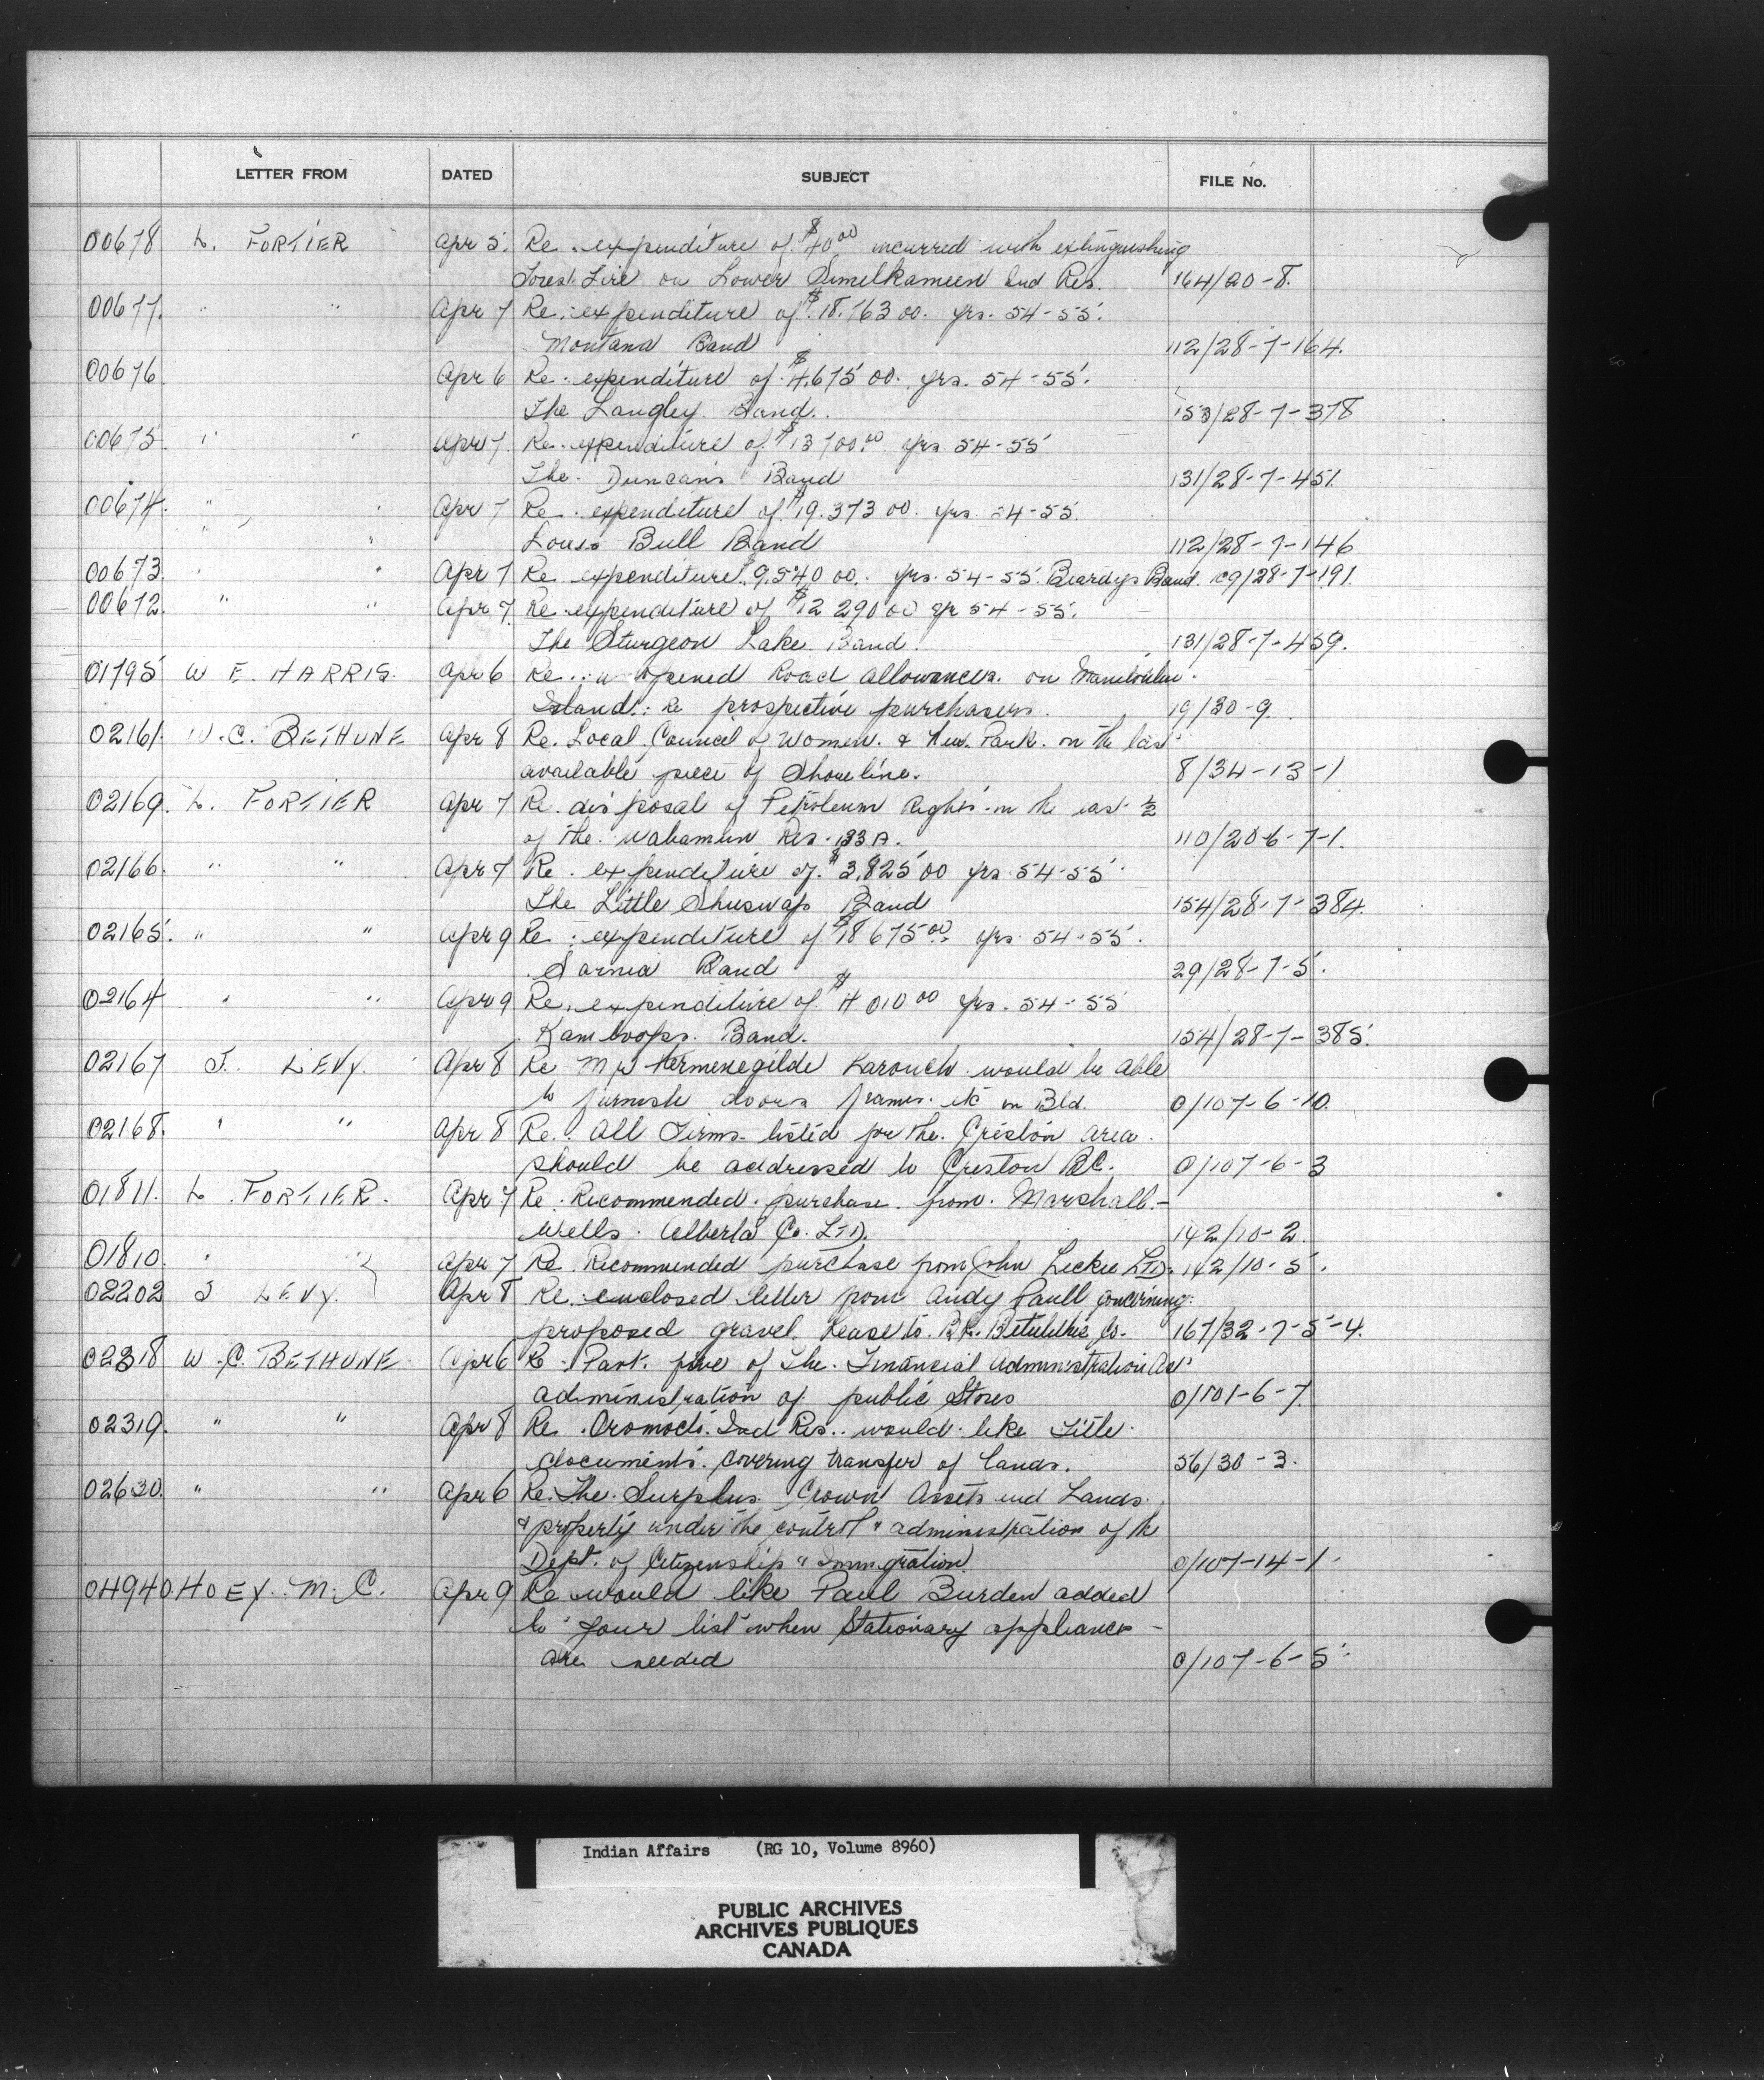 LETTER FROM DATED SUBJECT FILE No.
00678 L. FORTIER Apr 5. Re. expenditure of $40 00 incurred with extinguishing
Forest Fire on Lower Similkameen Ind Res. 164/20-8.
00677. " " Apr 7 Re. expenditure of $18,763 00. yrs. 54-55.
Montana Band 112/28-7-164.
00676 Apr 6 Re. expenditure of $4,675 00. yrs. 54-55.
The Langley Band. 153/28-7-378
00675. " " Apr 7. Re. expenditure of $13700.00 yrs 54-55
The Duncan's Band 131/28-7-451.
00674. " " Apr 7 Re. expenditure of $19.373 00. yrs. 54-55.
Louis Bull Band 112/28-7-146
00673. " " Apr 7 Re expenditure $9,540 00. yrs. 54-55. Beardys Band. 109/28-7-191.
00672. " " Apr 7. Re. expenditure of $12 290 00 yr 54-55.
The Sturgeon Lake Band. 131/28-7-459.
01795 W E. HARRIS. Apr 6 Re. opened Road Allowances. on Manitoulin
Island: Re prospective purchasers. 19/30-9.
02161. W.C. BETHUNE Apr 8 Re. Local Council of Women. & Park. on the last
available piece of Shoreline. 8/34-13-1
02169. L. FORTIER Apr 7 Re. disposal of Petroleum Rights in the east 1/2
of the Wabamun Res. 133 A. 110/20-6-7-1.
02166. " " Apr 7 Re. expenditure of $3,825 00 yrs 54-55
The Little Shuswap Band 154/28-7-384.
02165. " " Apr 9 Re: expenditure of $18 675 00. yrs. 54-55.
Sarnia Band 29/28-7-5.
02164 " " Apr 9 Re. expenditure of $4 010 00 yrs. 54-55
Kamloops. Band. 154/28-7-385.
02167 J. LEVY. Apr 8 Re Mr Hermenegilde Larouch would be able
to furnish doors frames. etc on Bld. 0/107-6-10.
02168. " " Apr 8 Re. All Firms listed for the Creston area.
should be addressed to Creston B.C. 0/107-6-3
01811. L. FORTIER. Apr 7 Re. Recommended purchase from Marshall-
Wells. Alberta Co. LTD. 142/10-2.
01810. " " Apr 7 Re. Recommended purchase from John Leckie LTD. 142/10-5.
02202 J LEVY. Apr 8 Re: enclosed letter from Andy Paull concerning
proposed gravel. Lease to Co. 167/32-7-5-4.
02318 W.C. BETHUNE Apr 6 Re. Part. five of The Financial Administration Act
administration of public Stores 0/101-6-7.
02319. " " Apr 8 Re. Oromocto Ind Res. would like Title
documents covering transfer of lands. 56/30-3.
02630. " " Apr 6 Re. The Surplus Crown Assets and Lands.
& property under the control & administration of the
Dept. of Citizenship & Immigration. 0/107-14-1.
04940. HOEY. M. C. Apr 9 Re would like Paul Burden added
to your list when Stationary appliances
are needed 0/107-6-5.
Indian Affairs (RG 10, Volume 8960)
PUBLIC ARCHIVES
ARCHIVES PUBLIQUES
CANADA